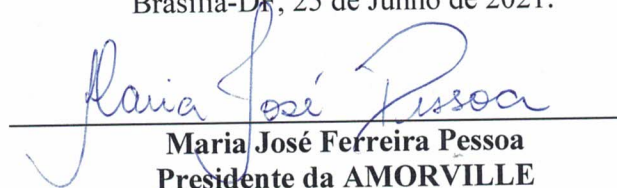 Brasília-DF, 25 de Junho de 2021.
Maria José Pessoa
Maria José Ferreira Pessoa
Presidente da AMORVILLE